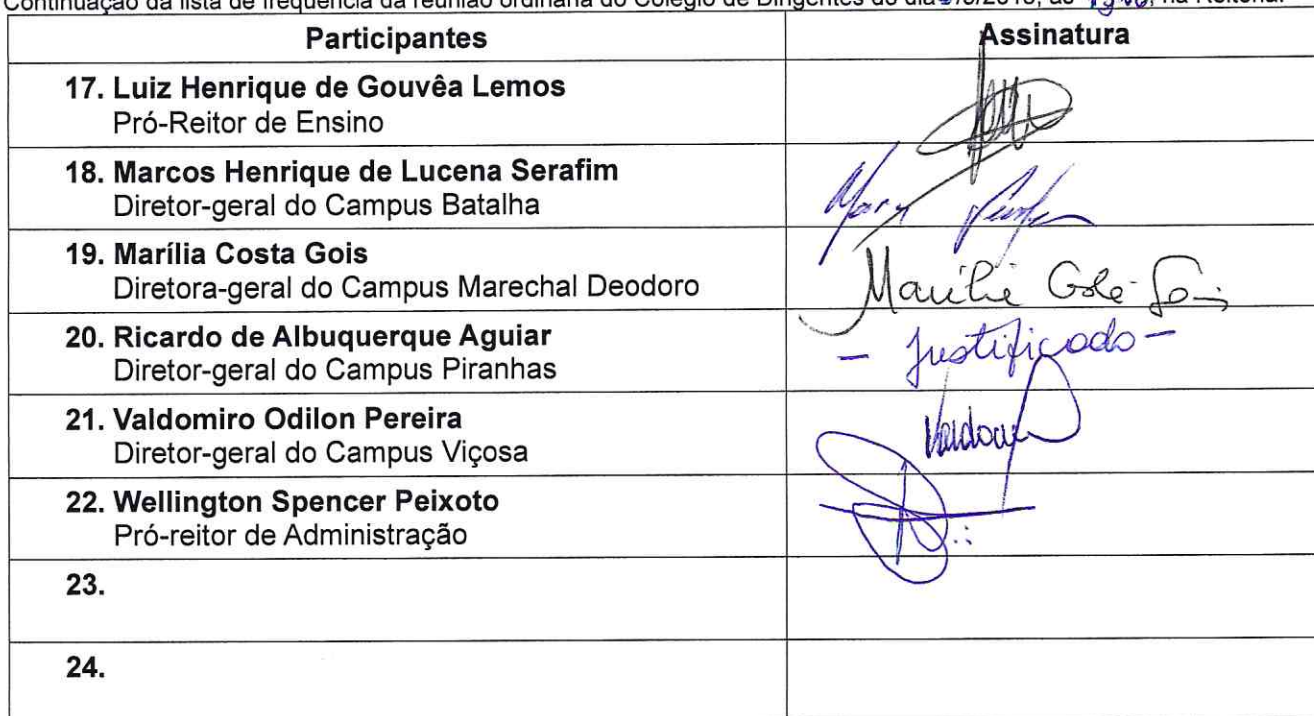 Continuação da lista de frequência da reunião ordinária do Colégio de Dirigentes do dia /2018, às na Reitoria.
Participantes Assinatura
17. Luiz Henrique de Gouvêa Lemos
Pró-Reitor de Ensino
18. Marcos Henrique de Lucena Serafim
Diretor-geral do Campus Batalha
19. Marília Costa Gois
Diretora-geral do Campus Marechal Deodoro
20. Ricardo de Albuquerque Aguiar
- Justificado -
Diretor-geral do Campus Piranhas
21. Valdomiro Odilon Pereira
Diretor-geral do Campus Viçosa
22. Wellington Spencer Peixoto
Pró-reitor de Administração
23.
24.